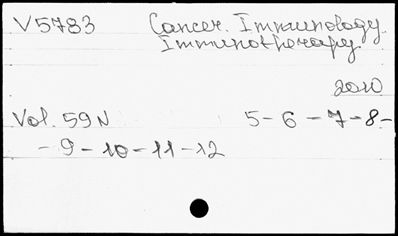 V5783 Cancer. Immunology.
Immunotherapy
2010
Vol. 59 N 5-6-7-8-
-9-10-11-12